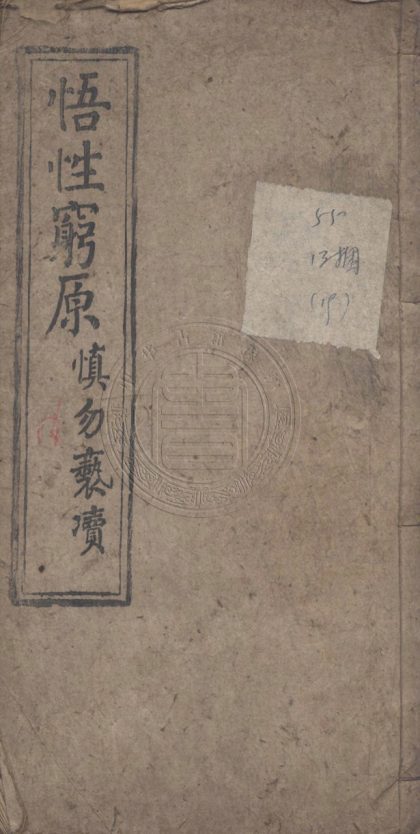 悟性窮原
慎勿褻瀆
55
13捆